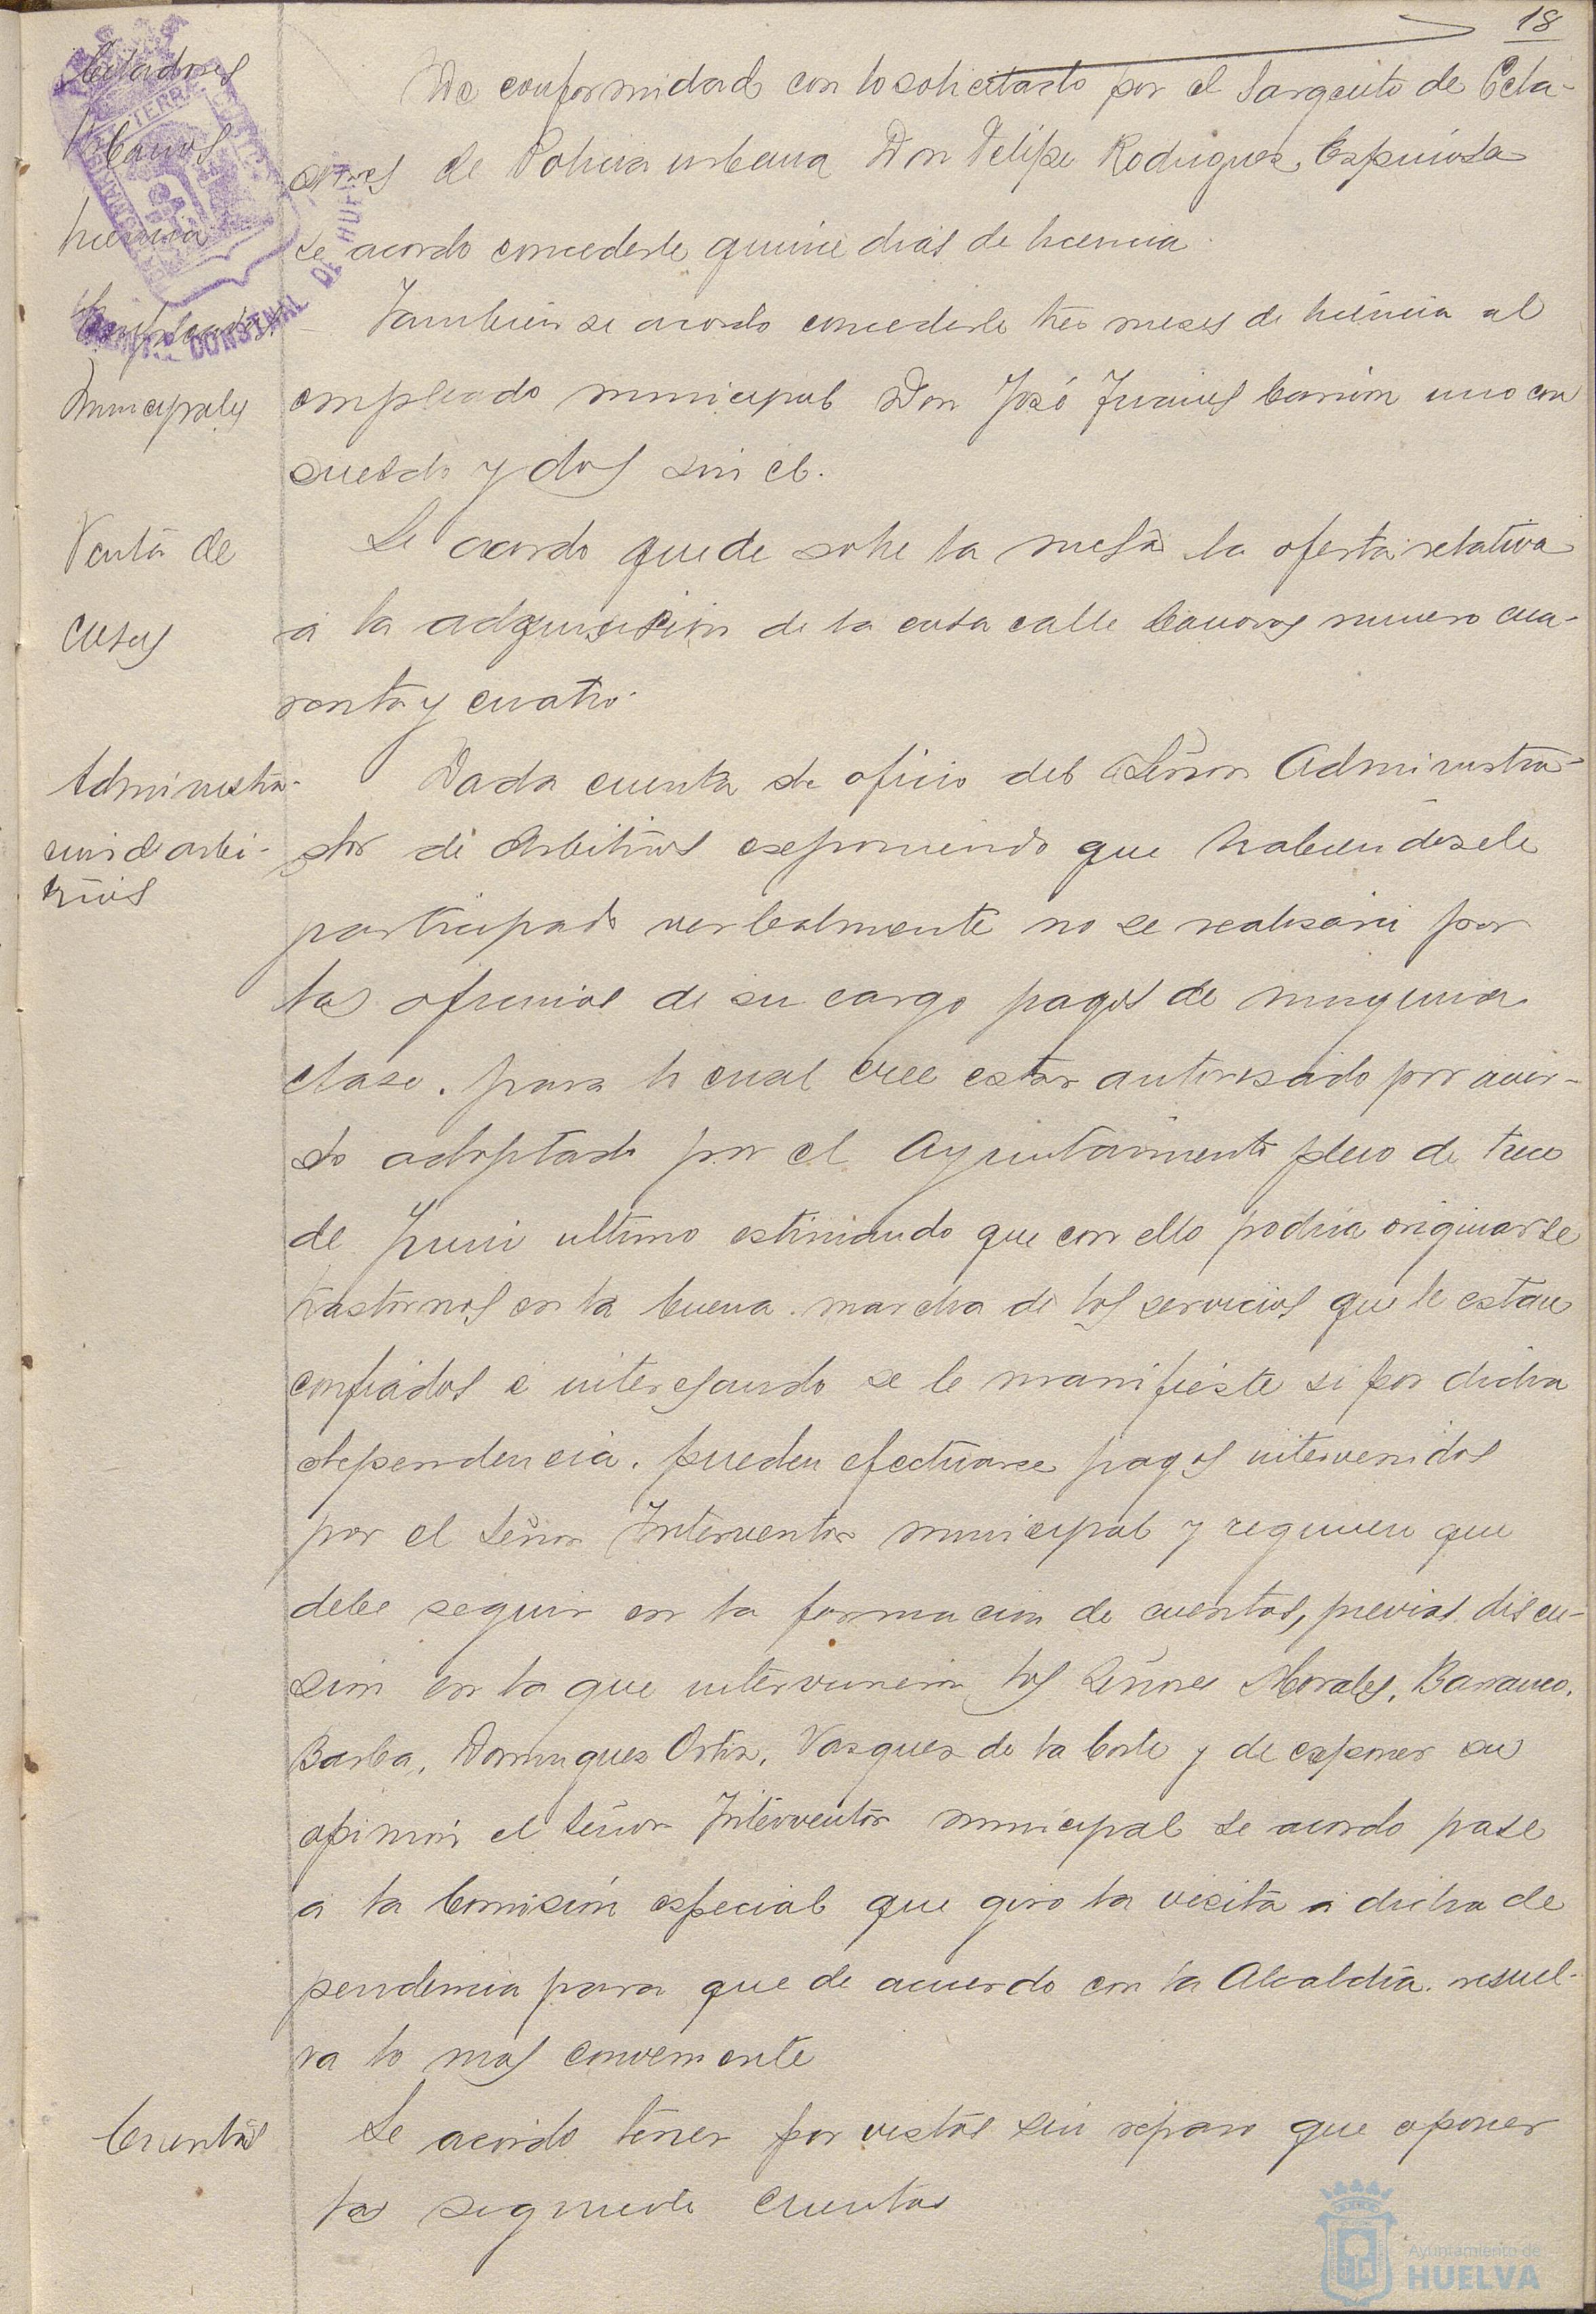 18
Celadores
Urbanos
licencia
De conformidad con lo solicitado por el Sargento de Cela-
dores de Policia urbana Don Felipe Rodriguez Espinosa
se acordo concederle quince dias de licencia.
Empleados
Municipales
Tambien se acordo concederle tres meses de licencia al
empleado municipal Don José Carrion uno con
sueldo y dos sin el.
Venta de
casas
Se acordo quede sobre la mesa la oferta relativa
a la adquisicion de la casa calle Canovas numero cua-
renta y cuatro.
Administra-
cion de arbi-
trios
Dada cuenta de oficio del Señor Administra-
dor de Arbitrios exponiendo que habiendosele
participado verbalmente no se realizaria por
las oficinas de su cargo pagos de ninguna
clase. para lo cual cree estar autorizado por acuer-
do adoptado por el Ayuntamiento pleno de trece
de Junio ultimo estimando que con ello podria originarse
trastornos en la buena marcha de los servicios que le estan
confiados e interesando se le manifieste si por dicha
dependencia. pueden efectuarse pagos intervenidos
por el Señor Interventor municipal y regimen que
debe seguir en la formacion de cuentas, previas discu-
sion en la que intervinieron los Señores Morales, Barranco,
Barba, Dominguez Ortiz, Vazquez de la Corte y de exponer su
opinion el Señor Interventor municipal se acordo pase
a la Comision especial que giro la visita a dicha de
pendencia para que de acuerdo con la Alcaldia. resuel-
va lo mas conveniente
Cuentas
Se acordo tener por vistas sin reparo que oponer
las siguiente cuentas
Ayuntamiento de
HUELVA